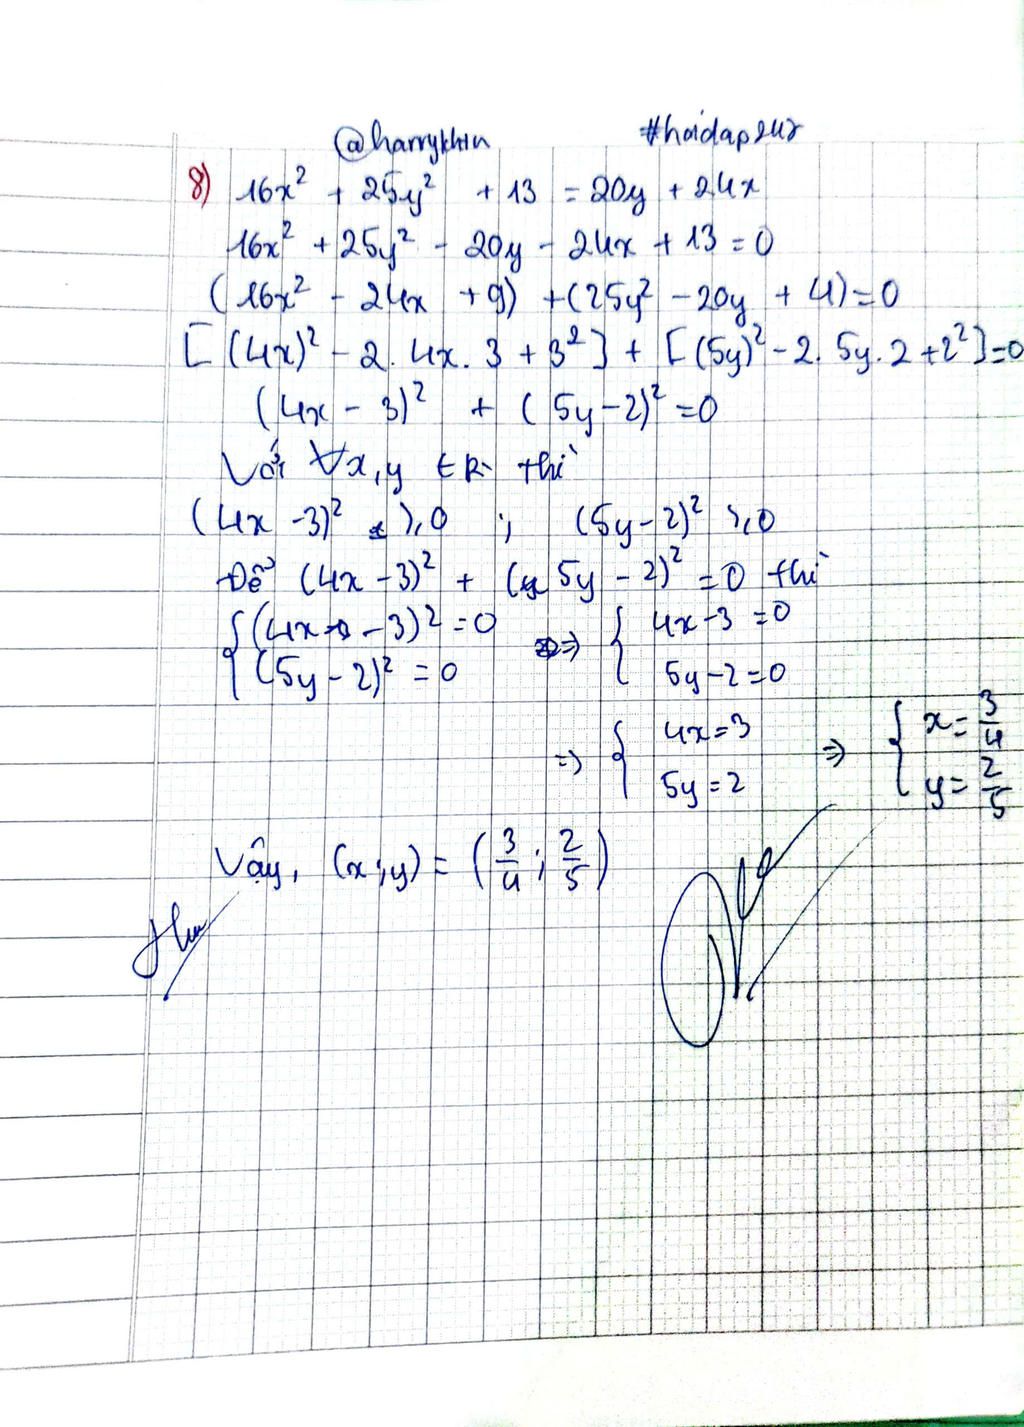 @harrykhtn #hoidap247
8) 16x² + 25y² + 13 = 20y + 24x
16x² + 25y² - 20y - 24x + 13 = 0
(16x² - 24x + 9) + (25y² - 20y + 4) = 0
[(4x)² - 2. 4x. 3 + 3²] + [(5y)² - 2. 5y. 2 + 2²] = 0
(4x - 3)² + (5y - 2)² = 0
Với ∀x,y ∈ R thì
(4x - 3)² ≥ 0 ; (5y - 2)² ≥ 0
Để (4x - 3)² + (5y - 2)² = 0 thì
{ (4x - 3)² = 0 ⇒ { 4x - 3 = 0
(5y - 2)² = 0 5y - 2 = 0
⇒ { 4x = 3 ⇒ { x = 3/4
5y = 2 y = 2/5
Vậy, (x;y) = (3/4 ; 2/5)